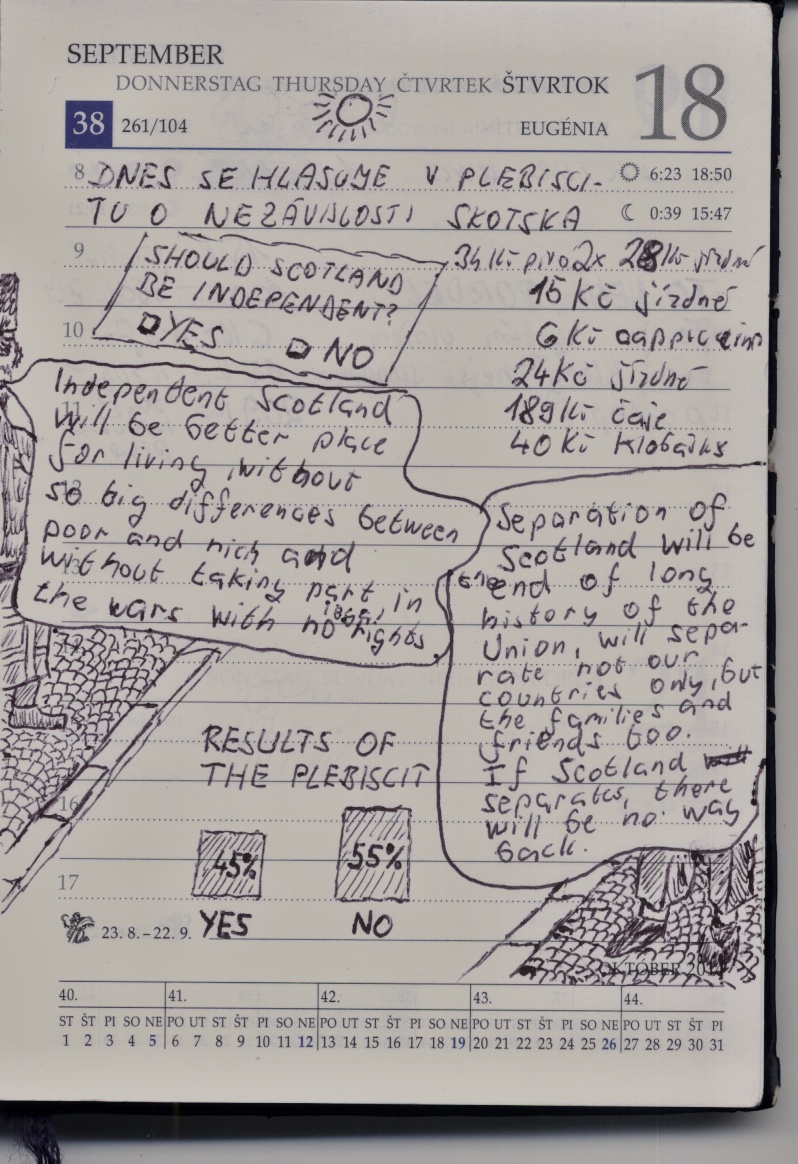 SEPTEMBER
DONNERSTAG THURSDAY ČTVRTEK ŠTVRTOK
18
38 261/104 EUGÉNIA
8 DNES SE HLASUJE V PLEBISCI- 6:23 18:50
TU O NEZÁVISLOSTI SKOTSKA 0:39 15:47
9
SHOULD SCOTLAND
BE INDEPENDENT?
YES
NO
34 Kč pivo 2x 28 Kč jízdné
15 Kč jízdné
10
6 Kč cappuccino
24 Kč jízdné
189 Kč čaje
40 Kč klobásks
Independent Scotland
will be better place
for living, without
so big differences between
poor and rich and
without taking part in
the wars with no rights.
Separation of
Scotland will be
the end of long
history of the
Union, will sepa-
rate not our
countries only, but
the families and
friends too.
If Scotland
separates, there
will be no way
back.
RESULTS OF
THE PLEBISCIT
16
45% 55%
17
YES NO
23. 8. – 22. 9.
OKTOBER
40. 41. 42. 43. 44.
ST ŠT PI SO NE PO UT ST ŠT PI SO NE PO UT ST ŠT PI SO NE PO UT ST ŠT PI SO NE PO UT ST ŠT PI
1 2 3 4 5 6 7 8 9 10 11 12 13 14 15 16 17 18 19 20 21 22 23 24 25 26 27 28 29 30 31